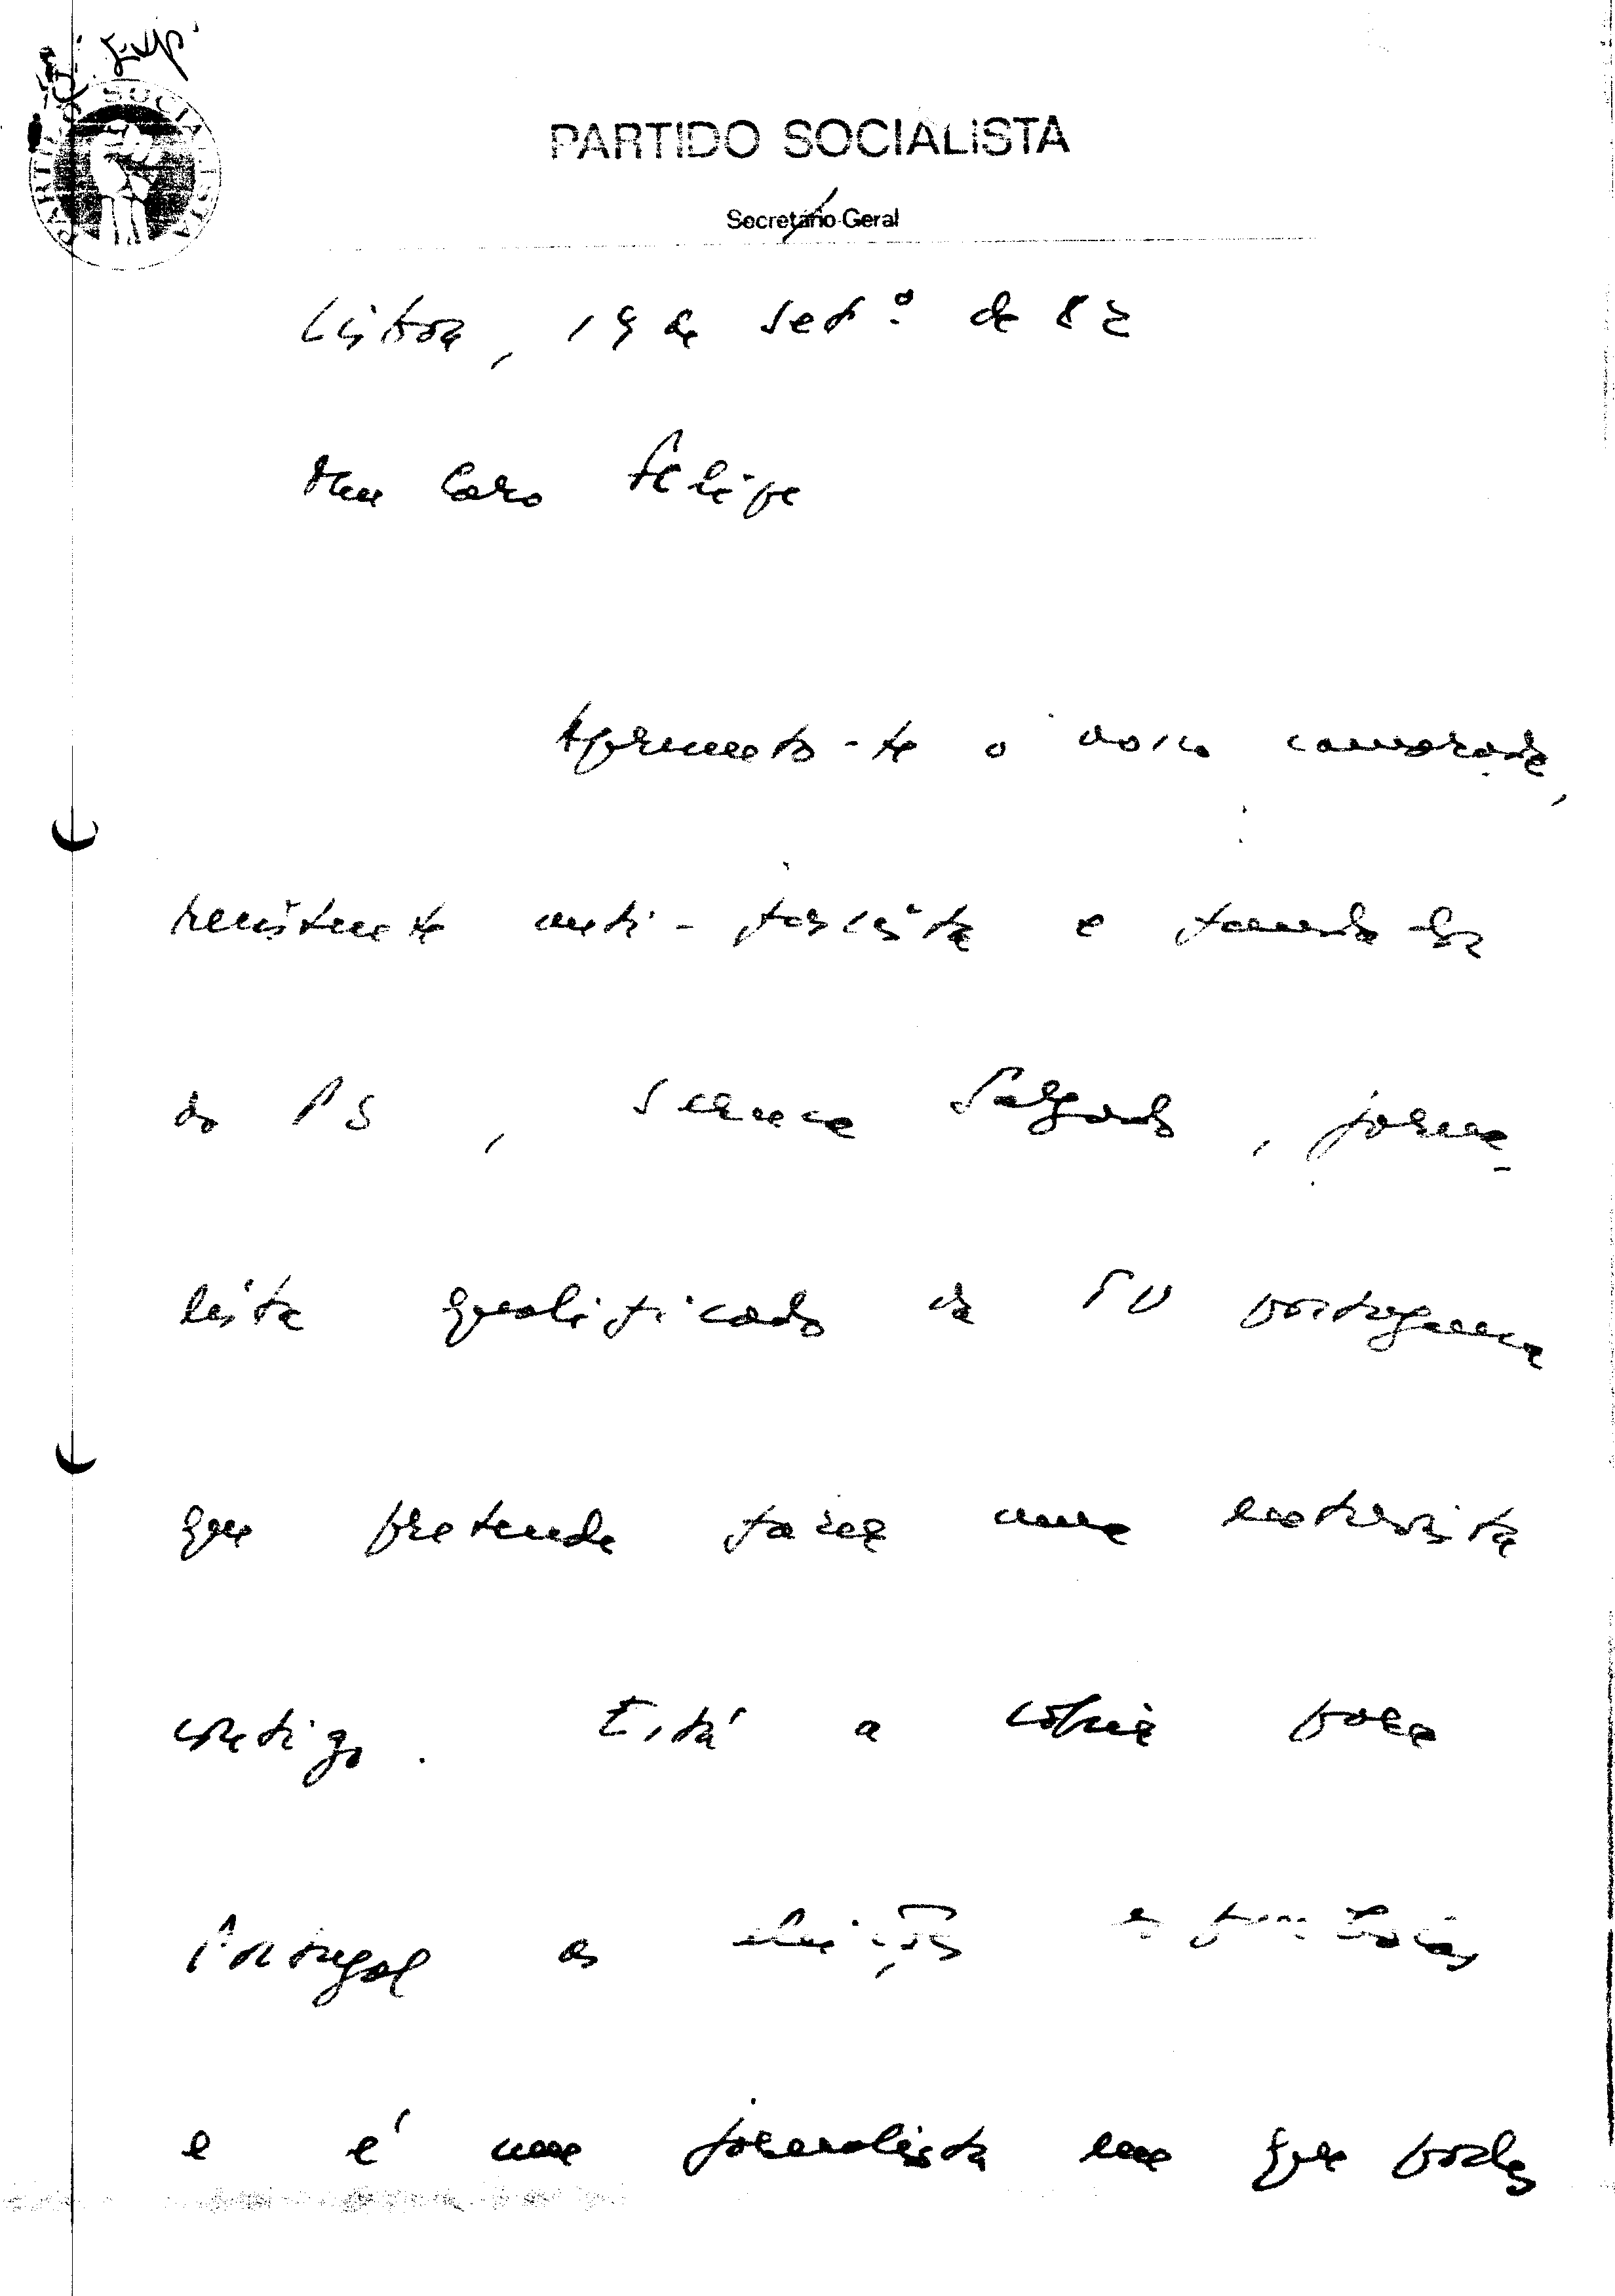 PARTIDO SOCIALISTA
Secretário-Geral
Lisboa, 19 de Setº de 82
Meu Caro Felipe
Apresento-te o nosso camarada,
resistente anti-fascista e fundador
do PS, Salgado, jorna-
lista qualificado da TV portuguesa
que pretende fazer uma entrevista
contigo. Está a cobrir para
Portugal as eleições espanholas
e é um jornalista em que podes